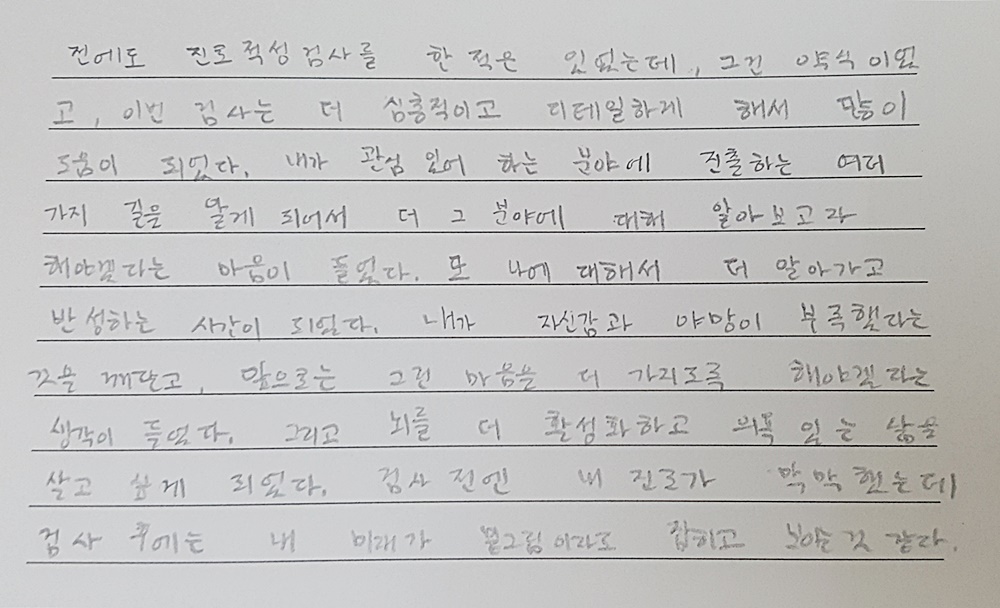 전에도 진로적성검사를 한 적은 있었는데, 그건 약식이었
고, 이번 검사는 더 심층적이고 디테일하게 해서 많이
도움이 되었다. 내가 관심 있어 하는 분야에 진출하는 여러
가지 길을 알게 되어서 더 그 분야에 대해 알아보고자
해야겠다는 마음이 들었다. 또 나에 대해서 더 알아가고
반성하는 시간이 되었다. 내가 자신감과 야망이 부족했다는
것을 깨닫고, 앞으로는 그런 마음을 더 가지도록 해야겠다는
생각이 들었다. 그리고 뇌를 더 활성화하고 의욕 있는 삶을
살고 싶게 되었다. 검사 전엔 내 진로가 막막했는데
검사 후에는 내 미래가 밑그림이라도 잡히고 것 같다.